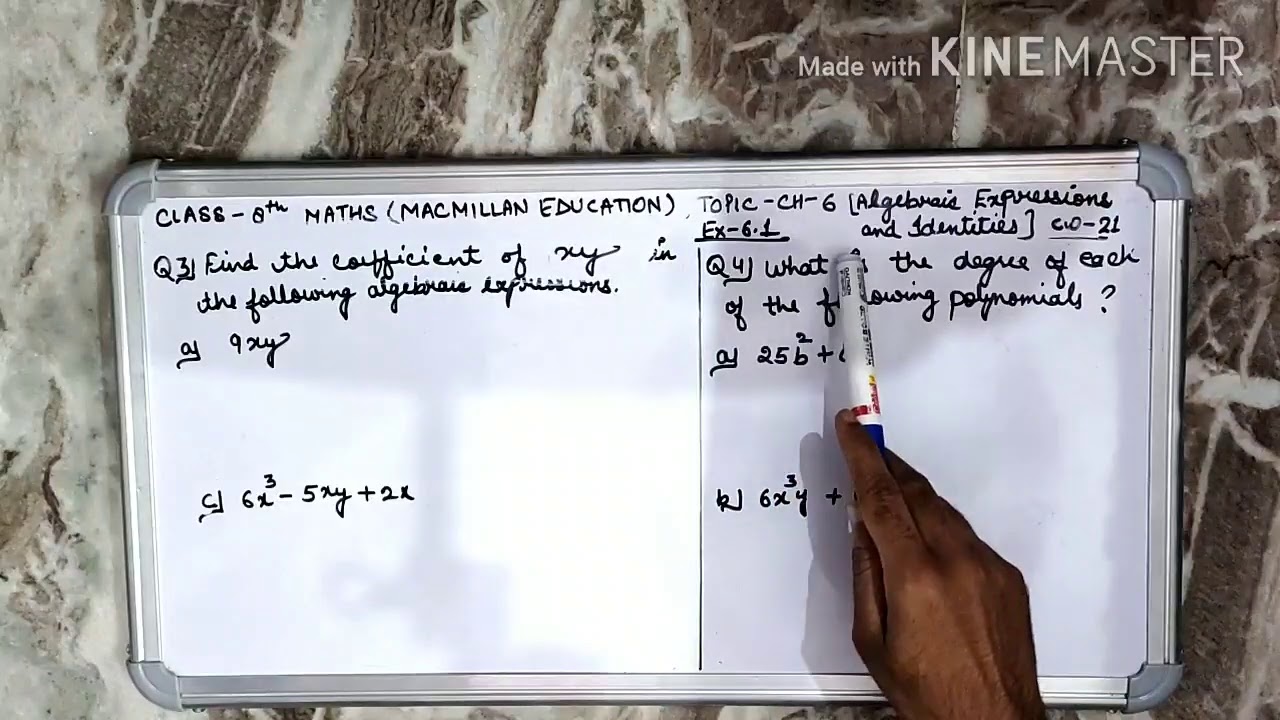 Made with KINEMASTER
CLASS - 8th MATHS (MACMILLAN EDUCATION), TOPIC - CH - 6 [Algebraic Expressions
Ex-6.1 and Identities] C.O-21
Q3] Find the coefficient of xy in
the following algebraic expressions.
a] 9xy
c] 6x³ - 5xy + 2x
Q4] What the degree of each
of the following polynomials ?
a] 25b² +
b] 6x³y +